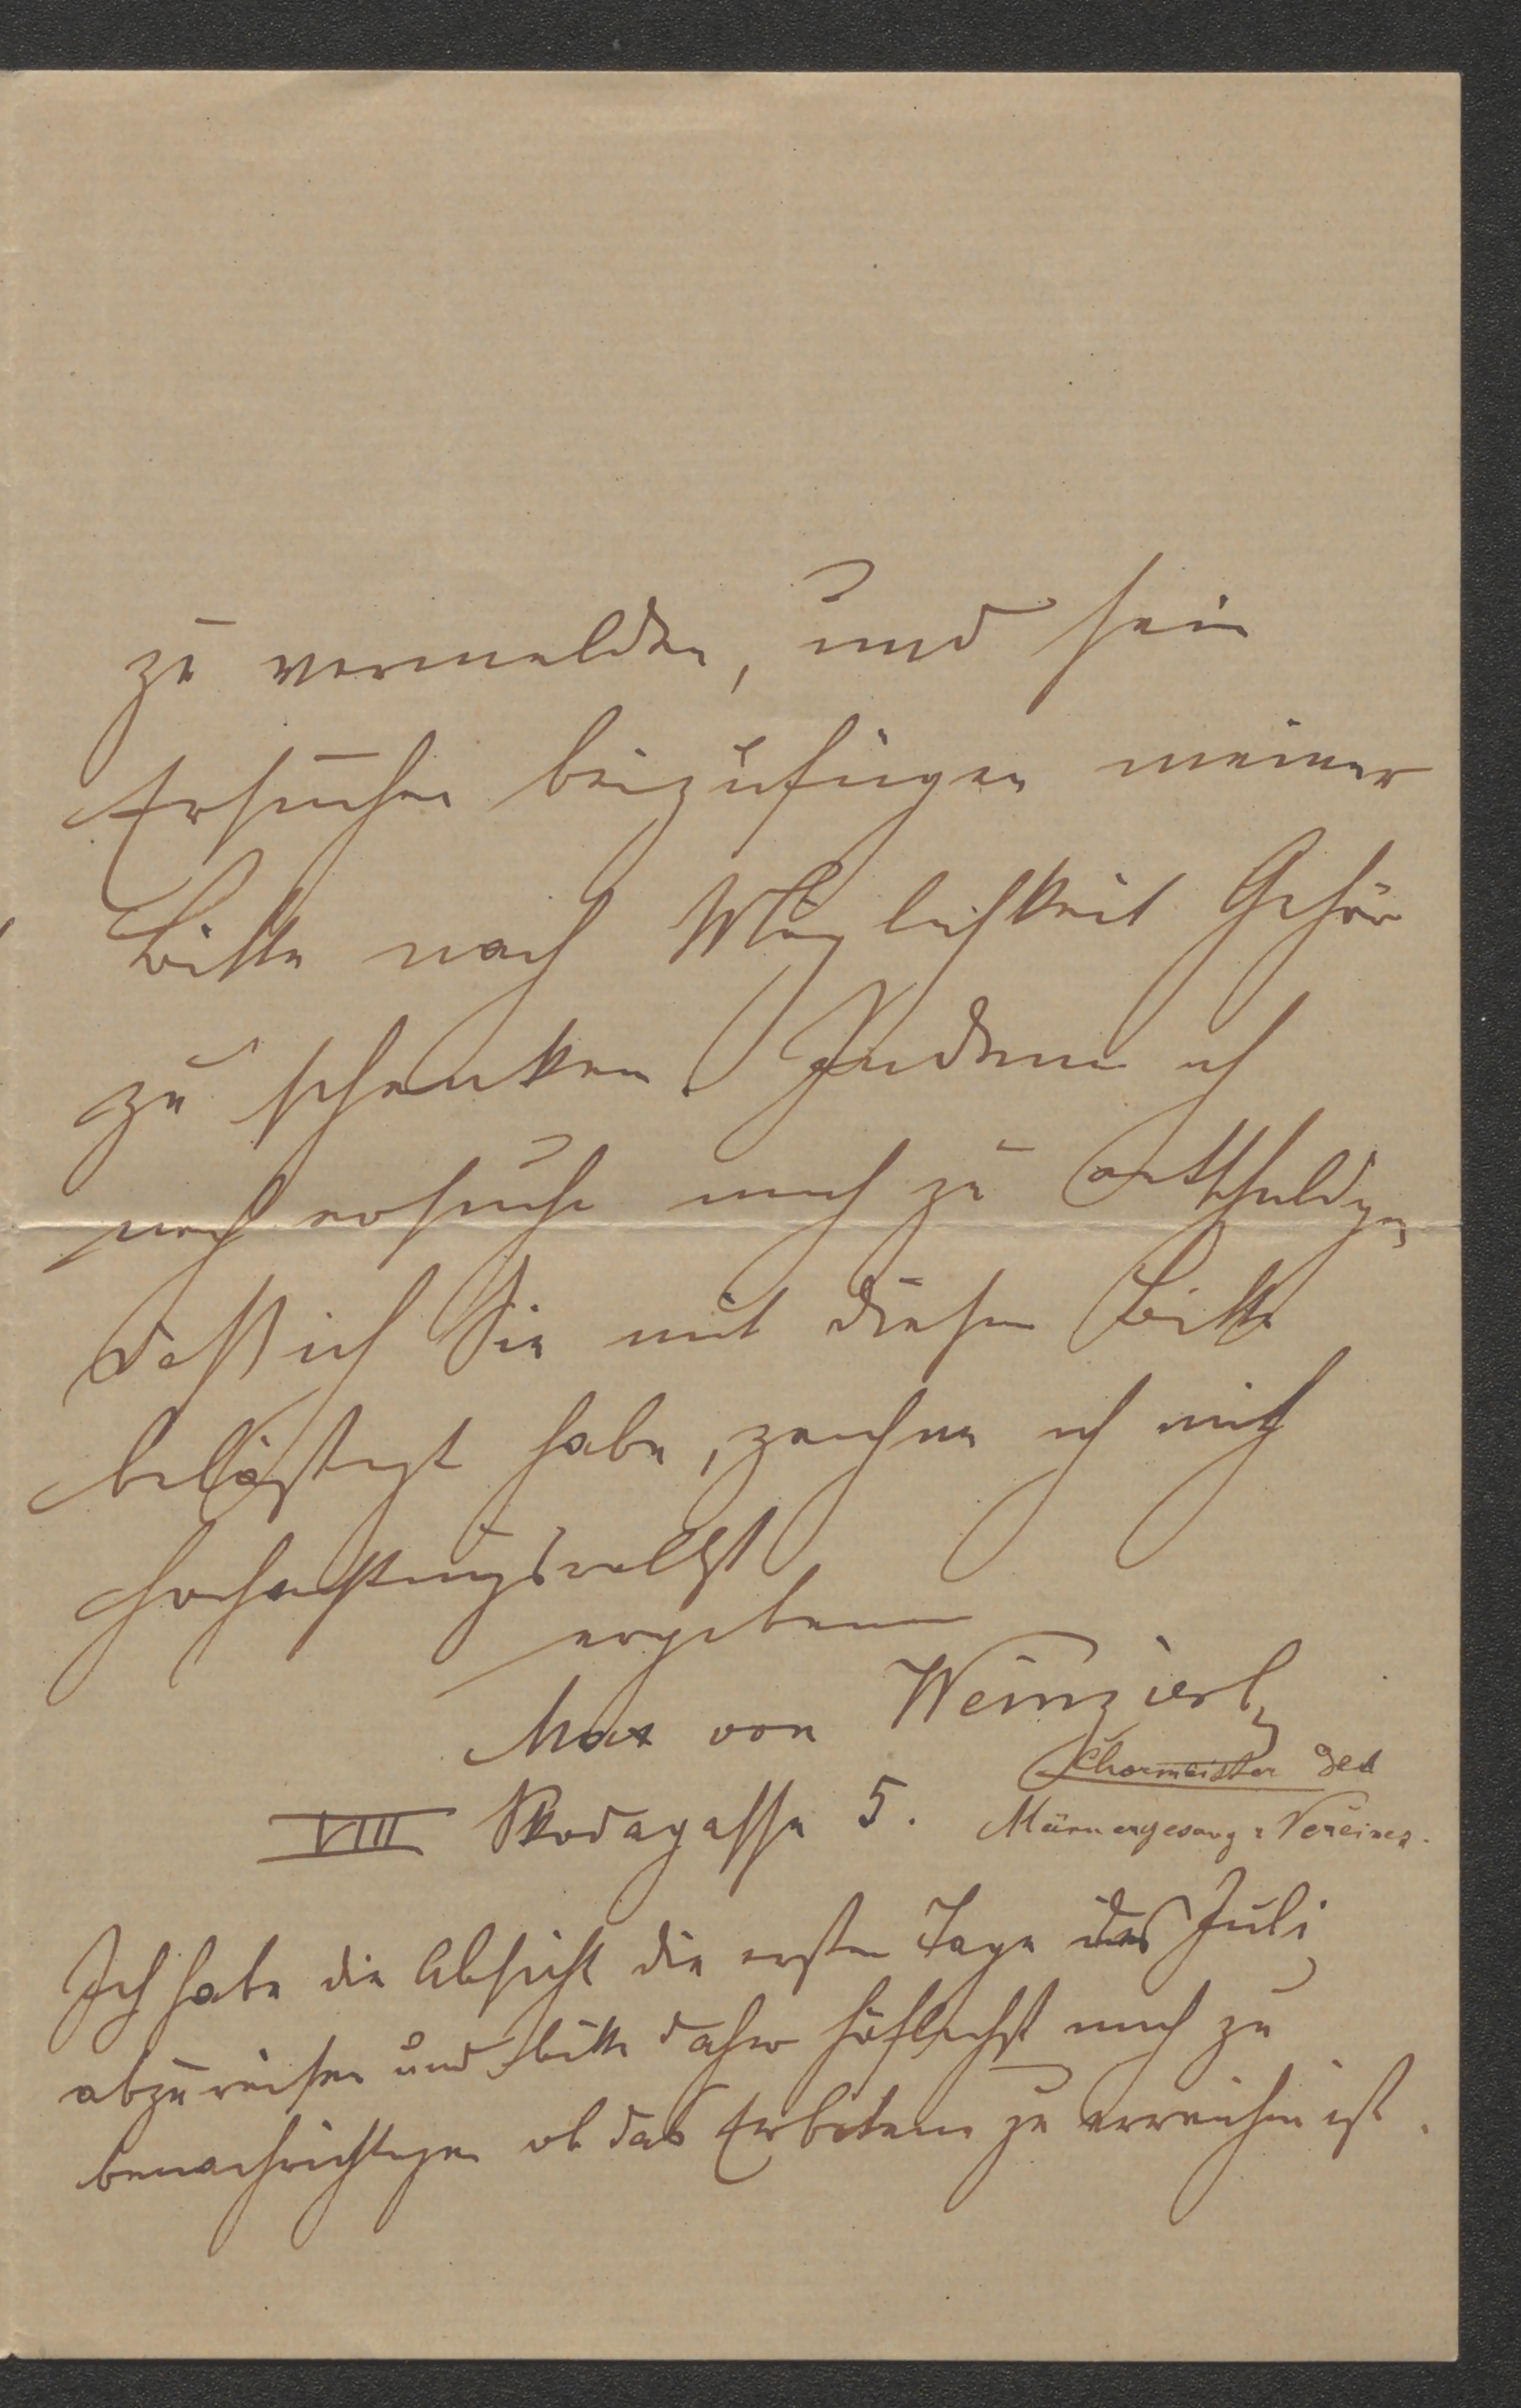 zu vermelden, und sein
Ersuchen beizufügen meiner
Bitte nach Möglichkeit Gehör
zu schenken. Indem ich
noch ersuche mich zu entschuldigen
daß ich Sie mit dieser Bitte
belästigt habe, zeichne ich mich
hochachtungsvollst
ergebenen
Max von Weinzierl,
Chormeister des
VIII Skodagasse 5. Männergesang-Vereines.
Ich habe die Absicht die ersten Tage des Juli
abzureisen und bitte daher höflichst mich zu
benachrichtigen ob das Erbetene zu erreichen ist.